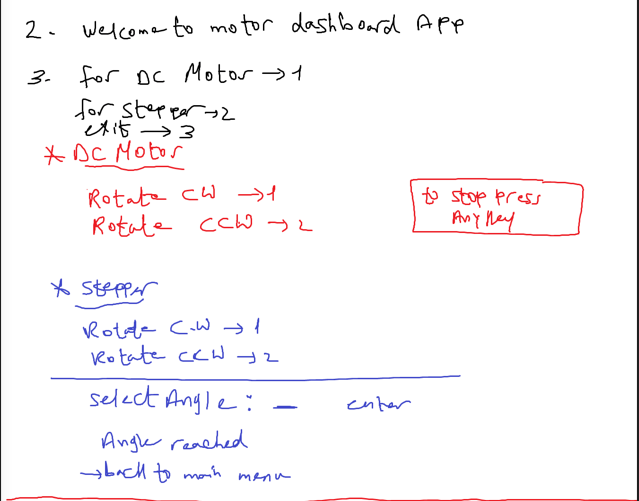 2. Welcome to motor dashboard App
3- for DC Motor → 1
for stepper → 2
exit → 3
* DC Motor
Rotate CW → 1
Rotate CCW → 2
to stop press
Any key
* Stepper
Rotate C.W → 1
Rotate CCW → 2
select Angle : _ enter
Angle reached
→ back to main menu